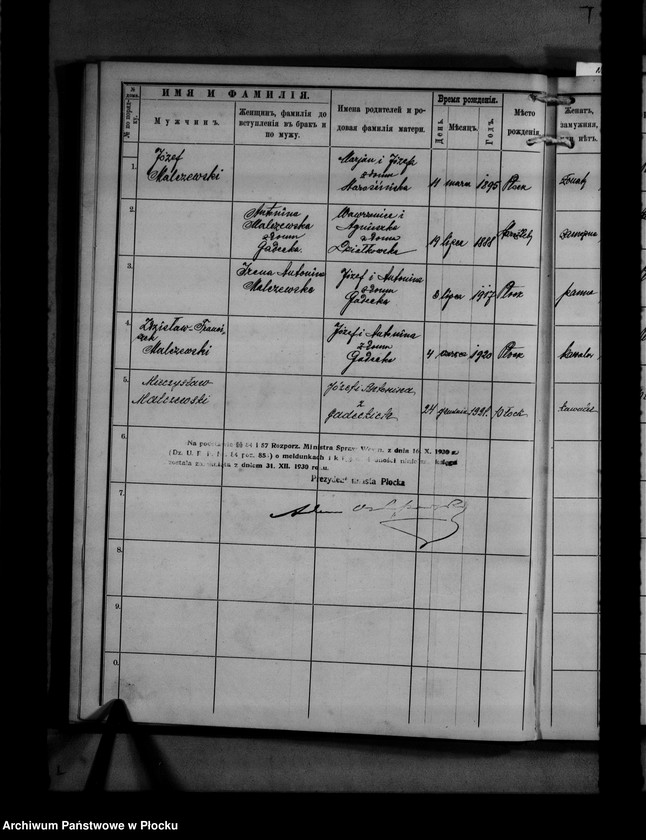 № дома.
№ по порядку.
ИМЯ И ФАМИЛІЯ.
Мужчинъ.
Женщинъ, фамилія до
вступленія въ бракъ и
по мужу.
Имена родителей и ро-
довая фамилія матери.
Время рожденія.
День.
Мѣсяцъ.
Годъ.
Мѣсто
рожденія.
Женатъ,
замужняя,
или нѣтъ.
1.
Józef
Malczewski
Marjan i Józefa
z domu
11 marca 1895 Płock
żonaty
2.
Antonina
Malczewska
z domu
Gadecka.
Wawrzeniec i
Agnieszka
z domu
Działkowska
19 lipca 1888
zamężna
3.
Irena-Antonina
Malczewska
Józef i Antonina
z domu
Gadecka
3 lipca 1917 Płock
panna
4.
Zdzisław-Franci
szek
Malczewski
Józef i Antonina
z domu
Gadecka
4 marca 1920 Płock
kawaler
5.
Mieczysław
Malczewski
Józef i Antonina
z
Gadeckich
24 grudnia 1921. Płock
kawaler
6.
Na podstawie §§ 64 i 87 Rozporz. Ministra Spraw Wewn. z dnia 16. X. 1930 r.
(Dz. U. R. P. Nr. 84 poz. 653) o meldunkach i księgach ludności niniejsza księga
została zamknięta z dniem 31. XII. 1930 roku.
Prezydent miasta Płocka
7.
8.
9.
0.
Archiwum Państwowe w Płocku